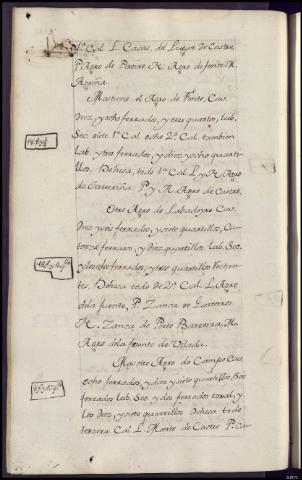 1ª Cal. L. Casas, del Lugar de Castro,
P. Agro de Pereiro M. Agro de fonte N.
Matierie el Agro de Fonte, Cau.
diez, y ocho ferrados, y tres quartos, lab.
Sec. siete 1ª Cal. ocho 2ª Cal. tambien
lab. y tres ferrados, y diez y ocho quarti-
llos, Dehesa, todo 1ª Cal. L. y N. Agro
P. y M. Agro de Castro.
Otro Agro de Labadoyro Cau.
diez y seis ferrados, y siete quartillos, Ca-
torze ferrados, y diez quartillos lab. Sec.
y los dos ferrados, y tres quartillos restan-
tes, Dehesa todo de 2ª Cal. L. Agro
dela fuente, P. Zanca de
M. Zanca de Porto N.
Agro dela fuente de Vilada.
Mas otro Agro de Campo Cau.
ocho ferrados, y diez y siete quartillos, Seis
ferrados lab. Sec. y dos ferrados toxal, y
los diez, y siete quartillos dehesa todo
tercera Cal. L. Monte de Castro P. Ca-